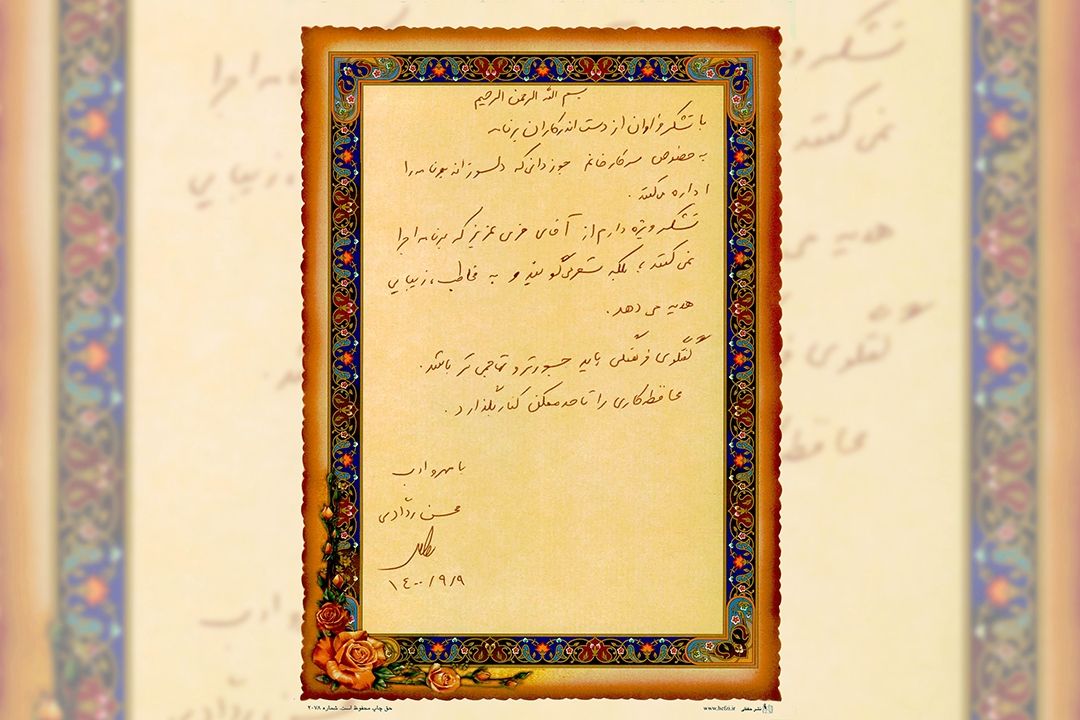 بسم الله الرحمن الرحیم
با تشکر فراوان از دست اندرکاران برنامه
به خصوص سرکار خانم جوزدانی که دلسوزانه برنامه را
اداره می‌کنند.
تشکر ویژه دارم از آقای عزیز که برنامه اجرا
نمی‌کنند، بلکه شعر می‌گویند و به مخاطب، زیبایی
هدیه می دهد.
گفتگوی فرهنگی باید جسورتر و تهاجمی تر باشد.
محافظه‌کاری را تا حد ممکن کنار بگذارد.
با مهر و ادب
محسن
۱۴۰۰/۹/۹
نشر حافظی www.hefzi.ir
حق چاپ محفوظ است. شماره ۲۰۷۸